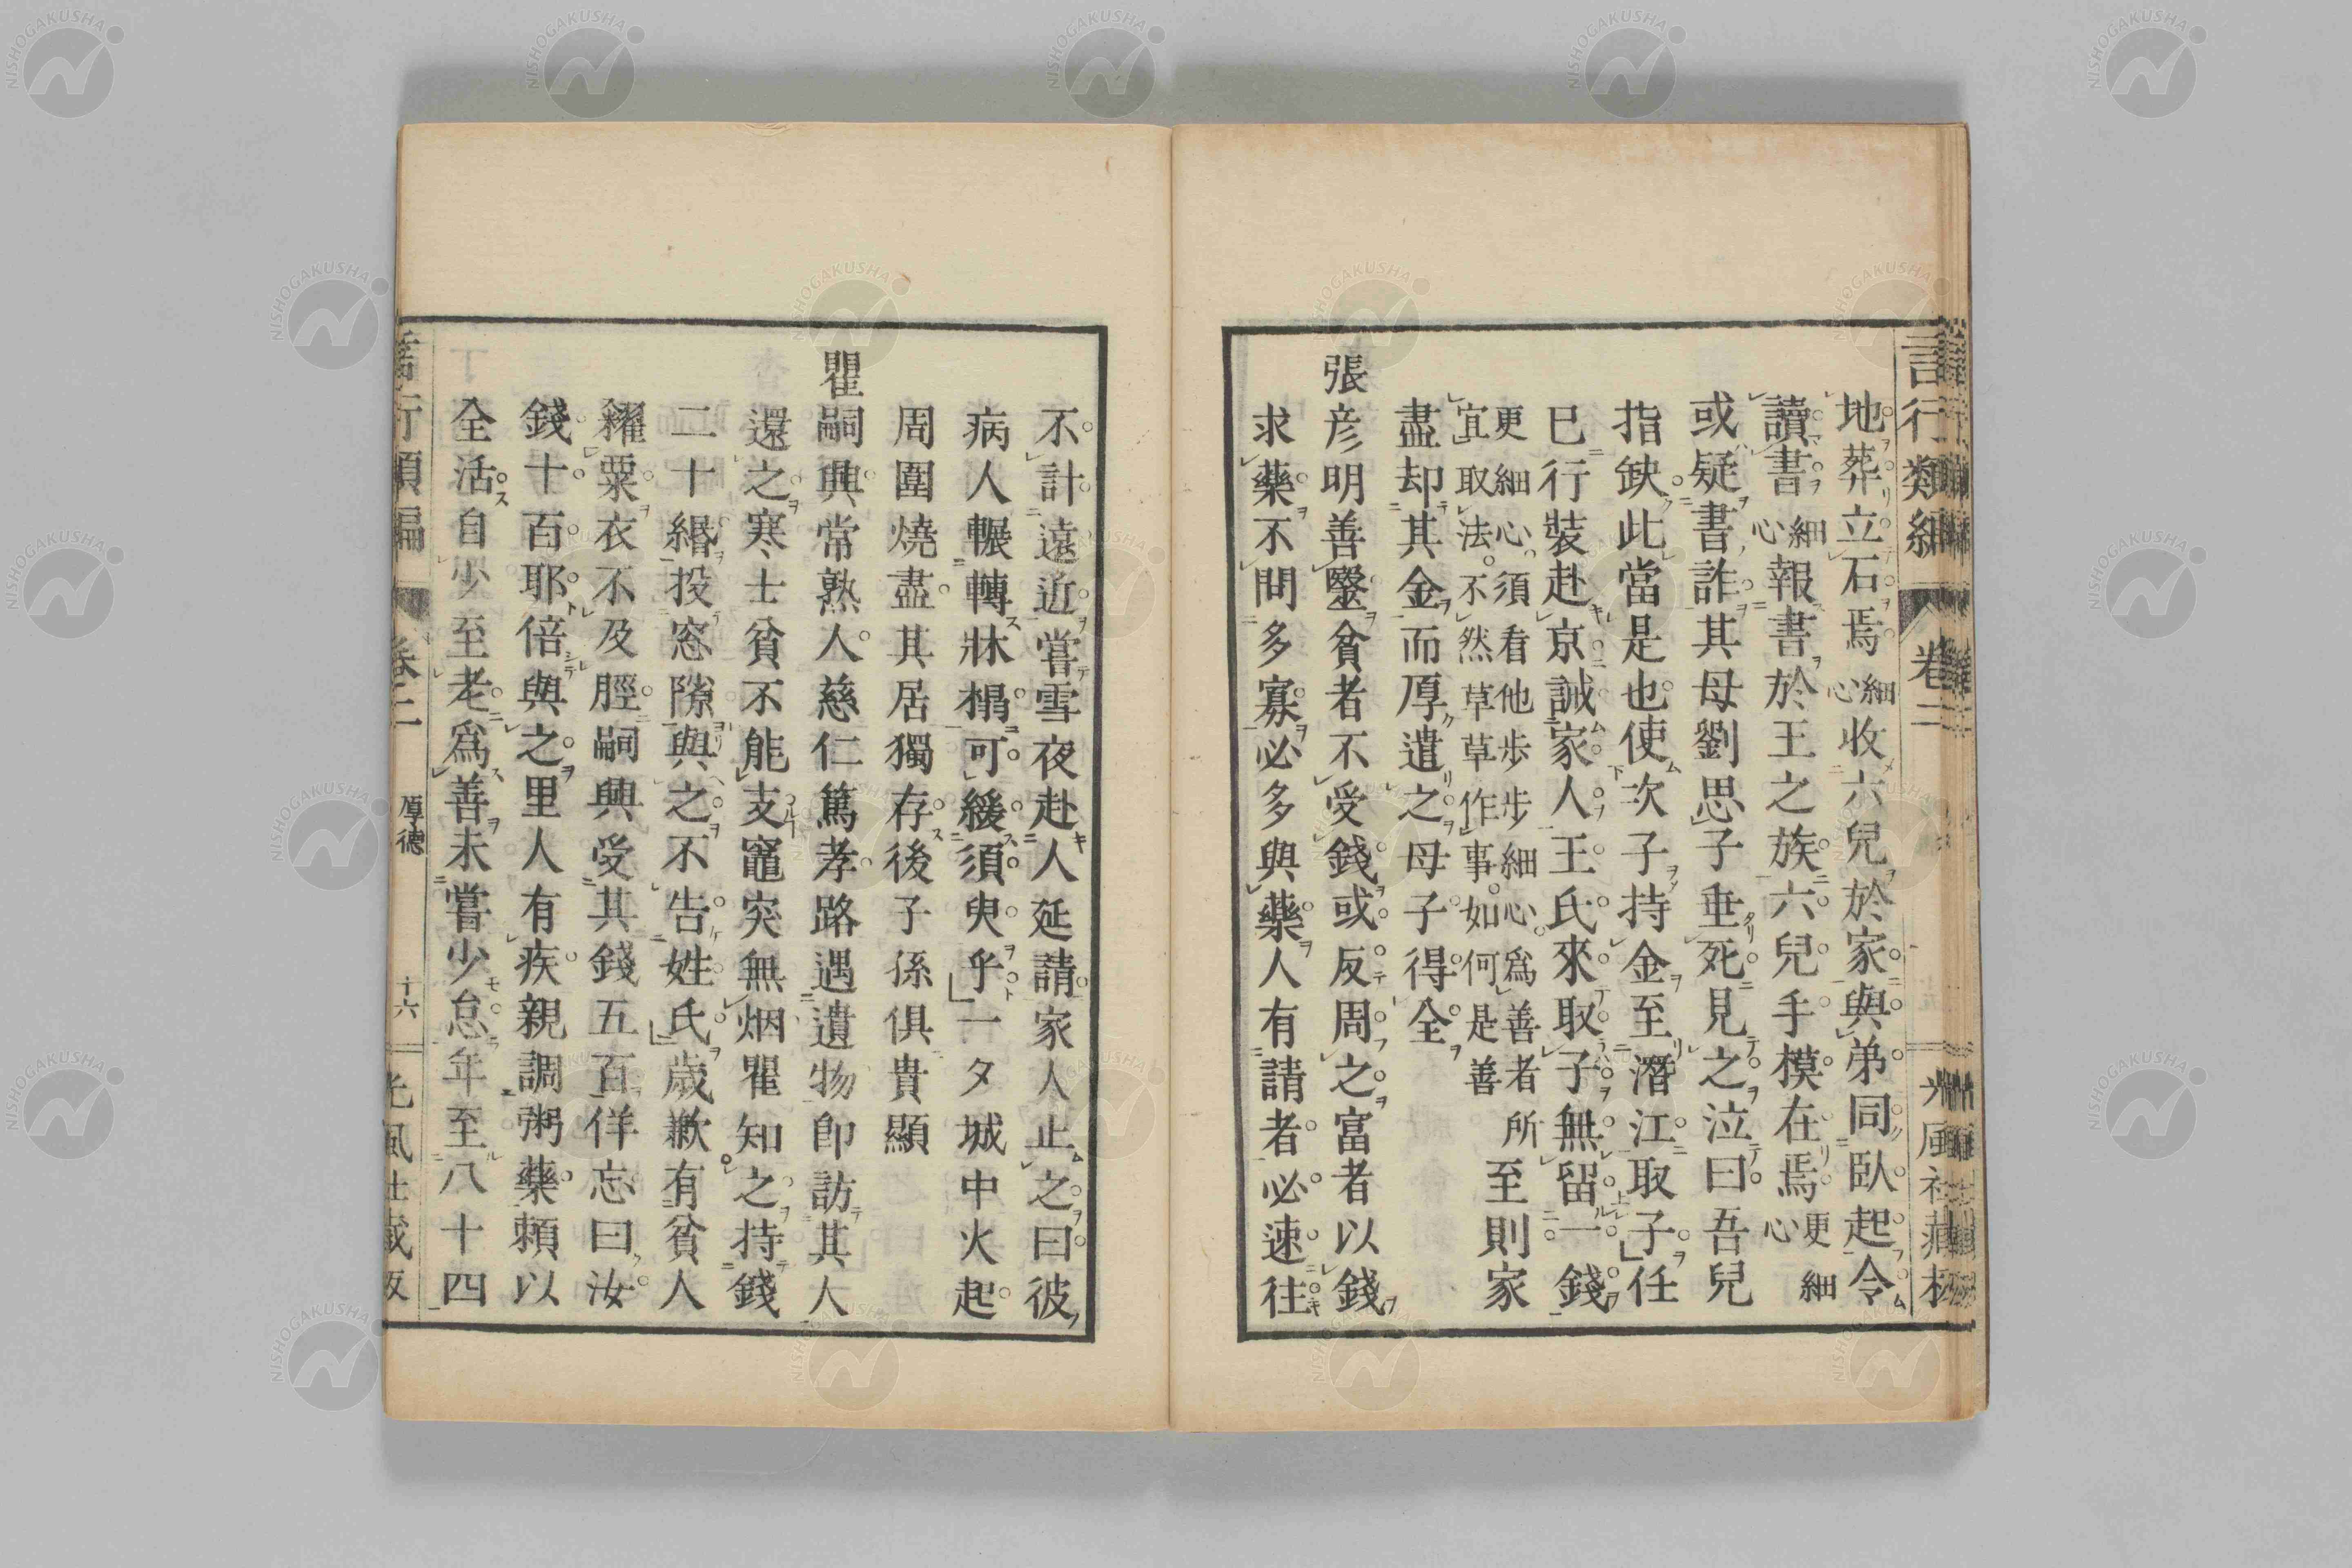 言行類編 卷二
地葬立石焉細心收六兒於家與弟同臥起令
讀書細心報書於王之族六兒手模在焉更細心
或疑書詐其母劉思子垂死見之泣曰吾兒
指缺此當是也使次子持金至潛江取子任
已行裝赴京誡家人王氏來取子無留一錢
更細心須看他步步細心爲善者所
宜取法不然草草作事如何是善
至則家
盡却其金而厚遣之母子得全
張彦明善毉貧者不受錢或反周之富者以錢
求藥不問多寡必多與藥人有請者必速往
不計遠近嘗雪夜赴人延請家人止之曰彼
病人輾轉牀榻可緩須臾乎一夕城中火起
周圍燒盡其居獨存後子係俱貴顯
瞿嗣興常熟人慈仁篤孝路遇遺物卽訪其人
還之寒士貧不能支竈突無烟瞿知之持錢
二十緡投窓隙與之不告姓氏歲歉有貧人
糴粟衣不及脛嗣興受其錢五百佯忘曰汝
錢十百耶倍與之里人有疾親調粥藥賴以
全活自少至老爲善未嘗少怠年至八十四
厚德 十六
NISHOGAKUSHA